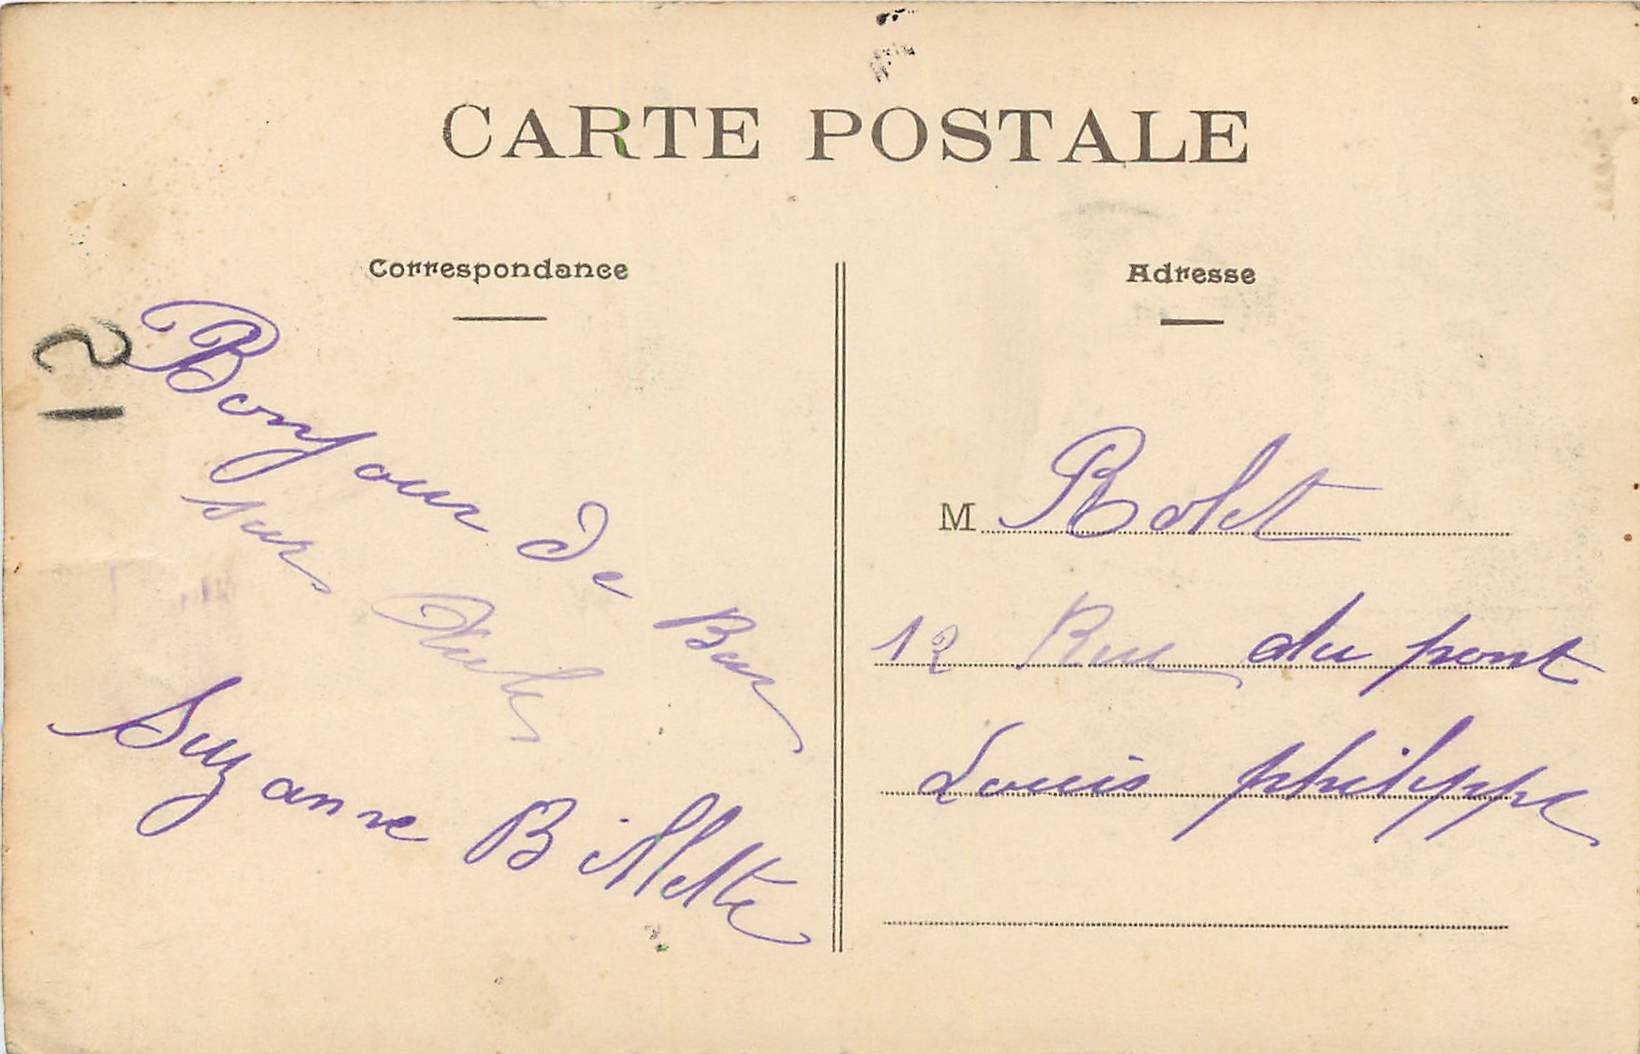 CARTE POSTALE
Correspondance
Bonjour de Bar
sur Aube
Suzanne Billette
21
Adresse
M Rolet
12 Rue du pont
Louis philippe